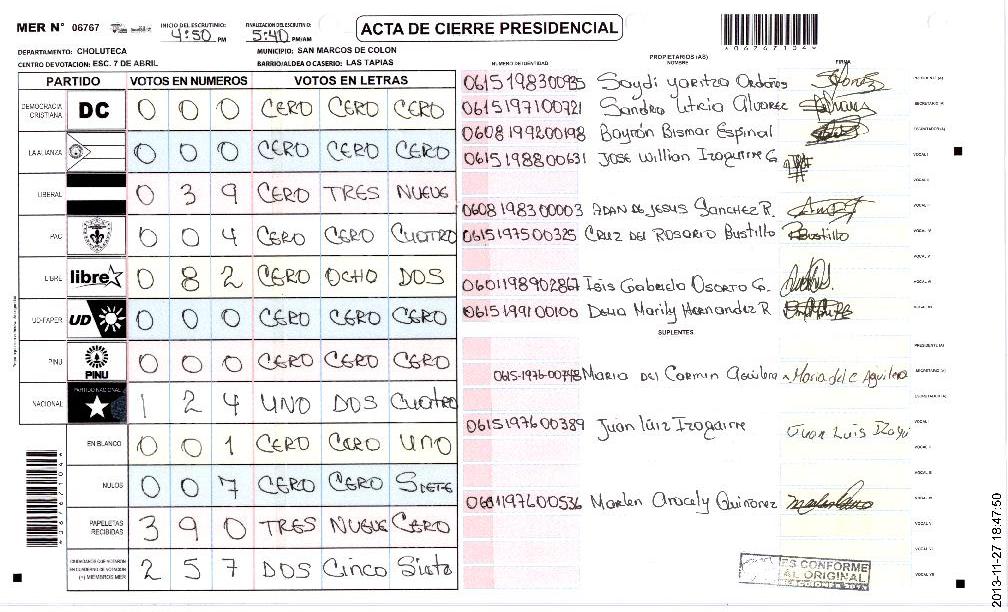 MER N° 06767
INICIO DEL ESCRUTINIO: 4:50 PM
FINALIZACION DEL ESCRUTINIO: 5:40 PM/AM
ACTA DE CIERRE PRESIDENCIAL
DEPARTAMENTO: CHOLUTECA
MUNICIPIO: SAN MARCOS DE COLON
CENTRO DE VOTACION: ESC. 7 DE ABRIL
BARRIO/ALDEA O CASERIO: LAS TAPIAS
PARTIDO VOTOS EN NUMEROS VOTOS EN LETRAS
DEMOCRACIA CRISTIANA DC 0 0 0 CERO CERO CERO
LA ALIANZA 0 0 0 CERO CERO CERO
LIBERAL 0 3 9 CERO TRES NUEVE
PAC 0 0 4 CERO CERO CUATRO
LIBRE libre 0 8 2 CERO OCHO DOS
UD-FAPER UD 0 0 0 CERO CERO CERO
PINU PINU 0 0 0 CERO CERO CERO
NACIONAL PARTIDO NACIONAL 1 2 4 UNO DOS CUATRO
EN BLANCO 0 0 1 CERO CERO UNO
NULOS 0 0 7 CERO CERO SIETE
PAPELETAS RECIBIDAS 3 9 0 TRES NUEVE CERO
CIUDADANOS QUE VOTARON EN CUADERNO DE VOTACION (+) MIEMBROS MER 2 5 7 DOS Cinco Siete
PROPIETARIOS (AS)
NUMERO DE IDENTIDAD NOMBRE FIRMA
0615198300935 Saydi Yaritza Ordoñes PRESIDENTE (A)
0615197100721 Sandra Leticia Alvarez SECRETARIO (A)
0608199200198 Bayrón Bismar Espinal ESCRUTADOR (A)
0615198800631 JOSE Willian Izaguirre G. VOCAL I
VOCAL II
0608198300003 ADAN DE JESUS SANCHEZ R. VOCAL III
0615197500325 CRUZ DEL ROSARIO Bustillo Bustillo VOCAL IV
VOCAL V
0601198902867 Isis Gabriela Osorto G. VOCAL VI
0615199100100 Delia Marily Hernandez R
SUPLENTES
PRESIDENTE (A)
0615-1976-00748 MARIA DEL CARMEN Aguilera Maria del C Aguilera SECRETARIO (A)
ESCRUTADOR (A)
0615197600389 Juan Luiz Izaguirre Juan Luis Izagui VOCAL I
VOCAL II
VOCAL III
0601197600536 Marlen Aracely Quiñonez VOCAL IV
VOCAL V
VOCAL VI
VOCAL VII
ES CONFORME
AL ORIGINAL
2013-11-27 18:47:50